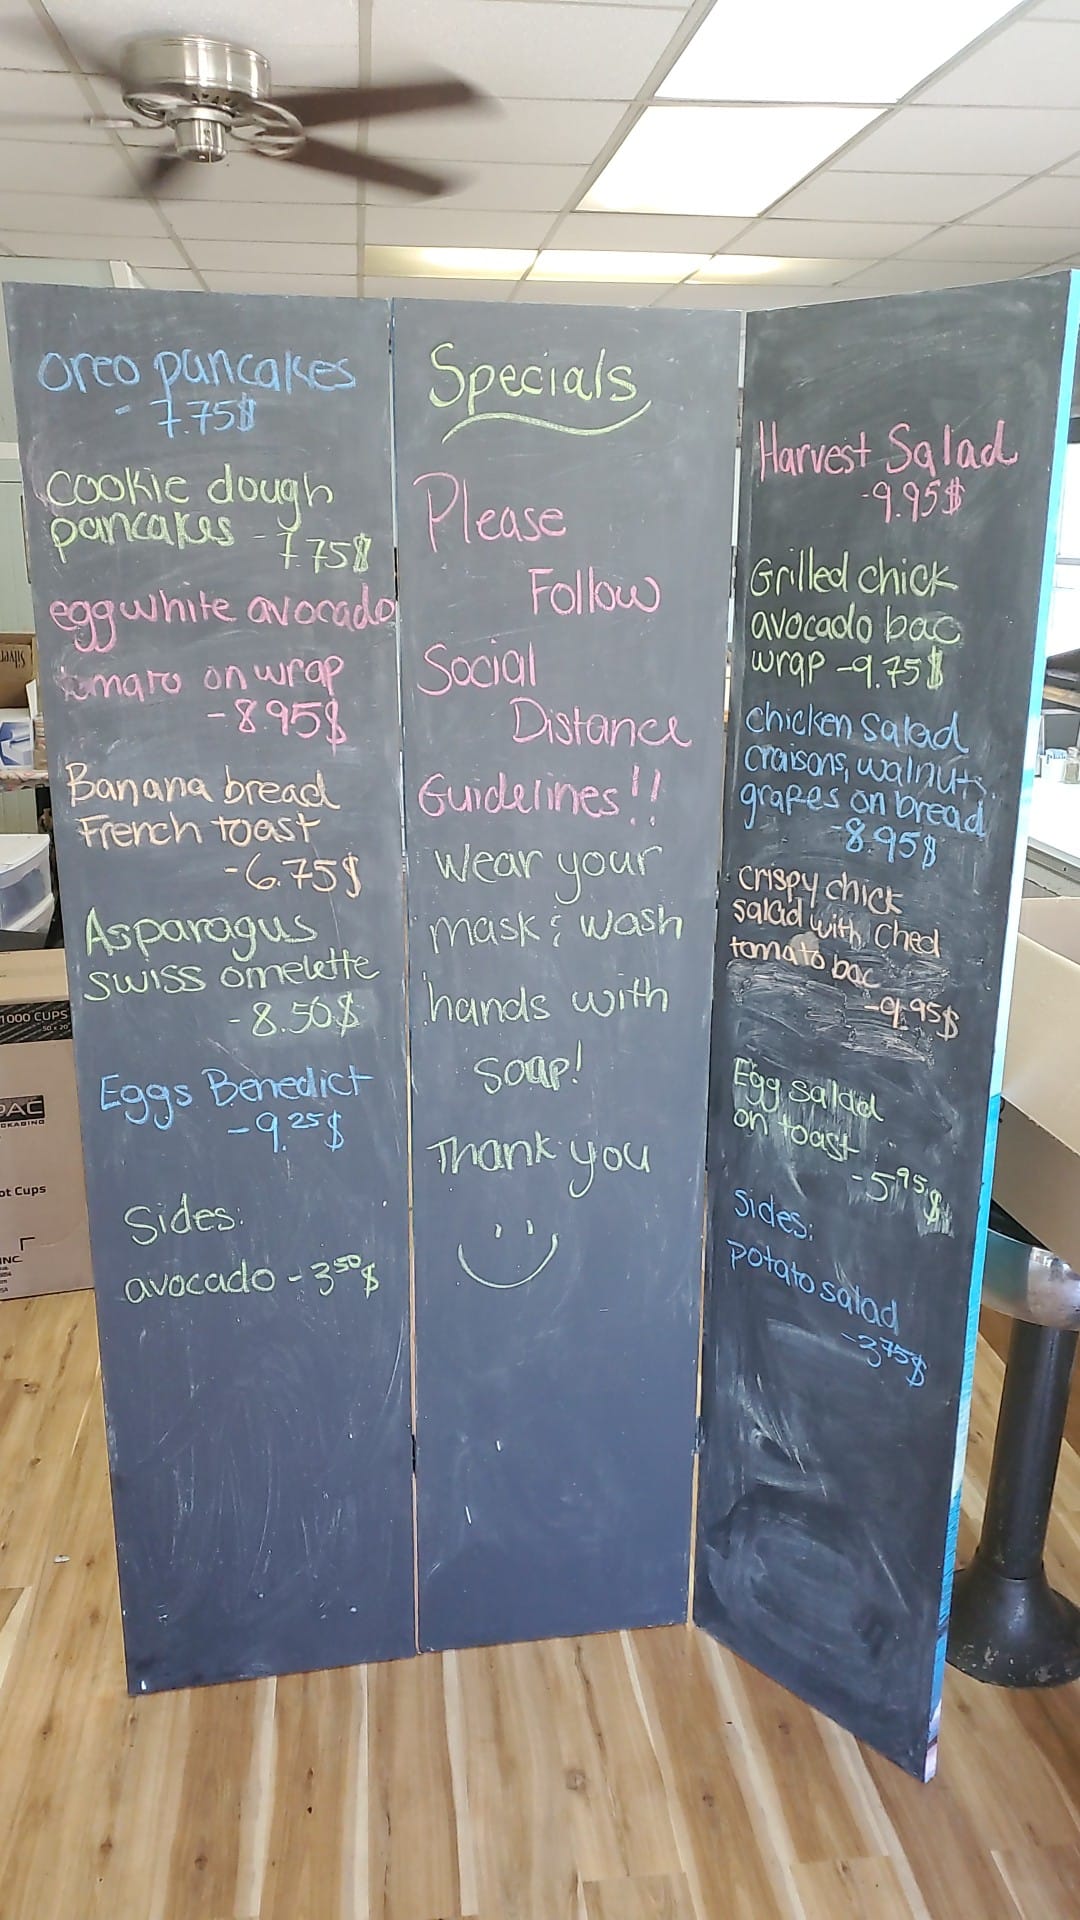 oreo pancakes
- 7.75$
cookie dough
pancakes - 7.75$
egg white avocado
tomato on wrap
- 8.95$
Banana bread
French toast
- 6.75$
Asparagus
swiss omelette
- 8.50$
Eggs Benedict
- 9.25$
Sides:
avocado - 3.50$
Specials
Please
Follow
Social
Distance
Guidelines!!
Wear your
mask & wash
hands with
soap!
Thank you
Harvest Salad
- 9.95$
Grilled chick
avocado bac
wrap - 9.75$
chicken salad
craisons, walnuts,
grapes on bread
- 8.95$
crispy chick
salad with ched
tomato bac
- 9.95$
Egg salad
on toast
- 5.95$
sides:
potato salad
- 3.75$
1000 CUPS
50 x 20
PAC
ot Cups
INC